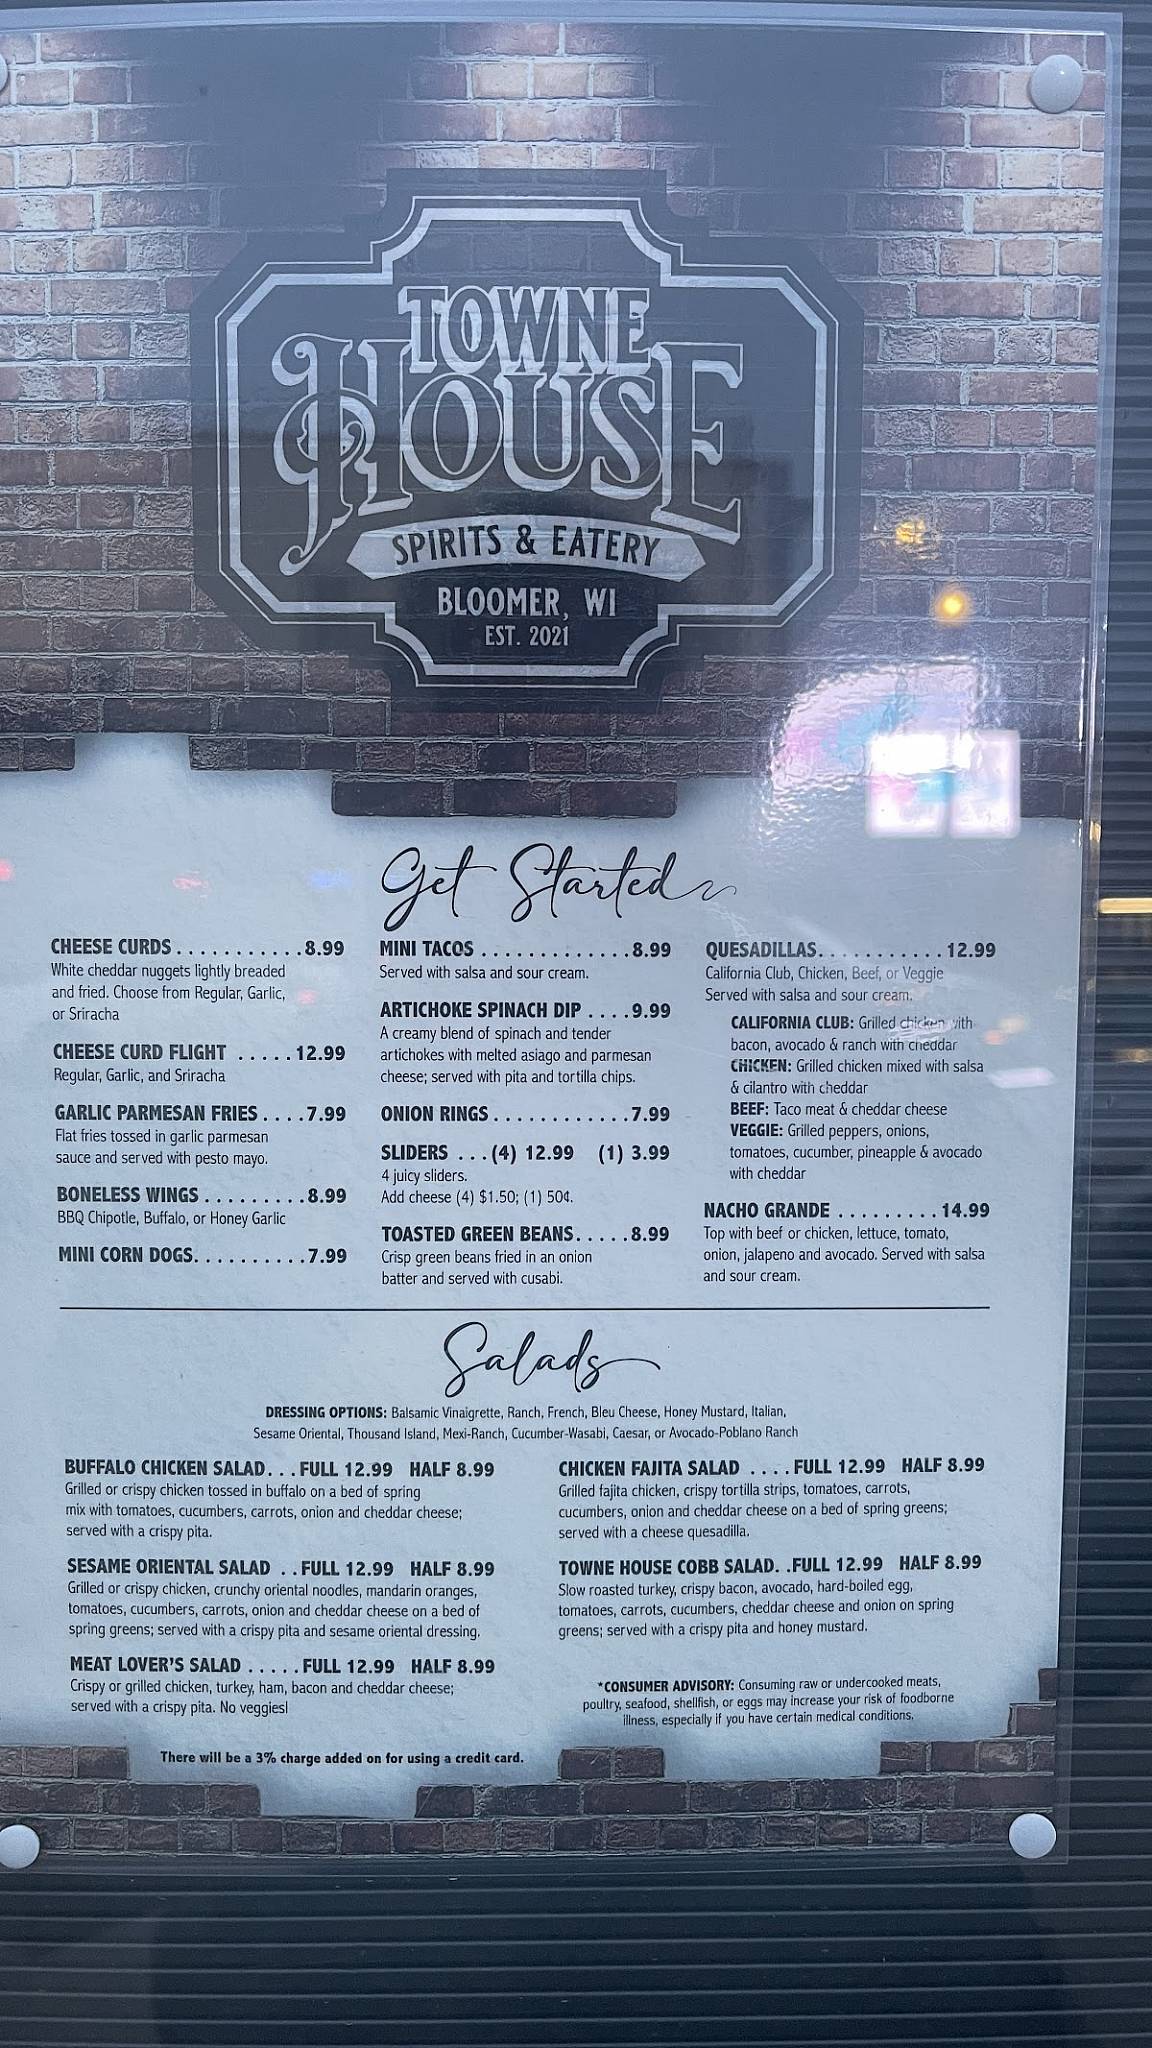 TOWNE
HOUSE
SPIRITS & EATERY
BLOOMER, WI
EST. 2021
Get Started
CHEESE CURDS...........8.99
White cheddar nuggets lightly breaded
and fried. Choose from Regular, Garlic,
or Sriracha
CHEESE CURD FLIGHT .....12.99
Regular, Garlic, and Sriracha
GARLIC PARMESAN FRIES ....7.99
Flat fries tossed in garlic parmesan
sauce and served with pesto mayo.
BONELESS WINGS .........8.99
BBQ Chipotle, Buffalo, or Honey Garlic
MINI CORN DOGS..........7.99
MINI TACOS .............8.99
Served with salsa and sour cream.
ARTICHOKE SPINACH DIP ....9.99
A creamy blend of spinach and tender
artichokes with melted asiago and parmesan
cheese; served with pita and tortilla chips.
ONION RINGS............7.99
SLIDERS ...(4) 12.99 (1) 3.99
4 juicy sliders.
Add cheese (4) $1.50; (1) 50¢.
TOASTED GREEN BEANS.....8.99
Crisp green beans fried in an onion
batter and served with cusabi.
QUESADILLAS...........12.99
California Club, Chicken, Beef, or Veggie
Served with salsa and sour cream.
CALIFORNIA CLUB: Grilled chicken with
bacon, avocado & ranch with cheddar
CHICKEN: Grilled chicken mixed with salsa
& cilantro with cheddar
BEEF: Taco meat & cheddar cheese
VEGGIE: Grilled peppers, onions,
tomatoes, cucumber, pineapple & avocado
with cheddar
NACHO GRANDE .........14.99
Top with beef or chicken, lettuce, tomato,
onion, jalapeno and avocado. Served with salsa
and sour cream.
Salads
DRESSING OPTIONS: Balsamic Vinaigrette, Ranch, French, Bleu Cheese, Honey Mustard, Italian,
Sesame Oriental, Thousand Island, Mexi-Ranch, Cucumber-Wasabi, Caesar, or Avocado-Poblano Ranch
BUFFALO CHICKEN SALAD...FULL 12.99 HALF 8.99
Grilled or crispy chicken tossed in buffalo on a bed of spring
mix with tomatoes, cucumbers, carrots, onion and cheddar cheese;
served with a crispy pita.
SESAME ORIENTAL SALAD ..FULL 12.99 HALF 8.99
Grilled or crispy chicken, crunchy oriental noodles, mandarin oranges,
tomatoes, cucumbers, carrots, onion and cheddar cheese on a bed of
spring greens; served with a crispy pita and sesame oriental dressing.
MEAT LOVER'S SALAD .....FULL 12.99 HALF 8.99
Crispy or grilled chicken, turkey, ham, bacon and cheddar cheese;
served with a crispy pita. No veggies!
CHICKEN FAJITA SALAD ....FULL 12.99 HALF 8.99
Grilled fajita chicken, crispy tortilla strips, tomatoes, carrots,
cucumbers, onion and cheddar cheese on a bed of spring greens;
served with a cheese quesadilla.
TOWNE HOUSE COBB SALAD..FULL 12.99 HALF 8.99
Slow roasted turkey, crispy bacon, avocado, hard-boiled egg,
tomatoes, carrots, cucumbers, cheddar cheese and onion on spring
greens; served with a crispy pita and honey mustard.
*CONSUMER ADVISORY: Consuming raw or undercooked meats,
poultry, seafood, shellfish, or eggs may increase your risk of foodborne
illness, especially if you have certain medical conditions.
There will be a 3% charge added on for using a credit card.